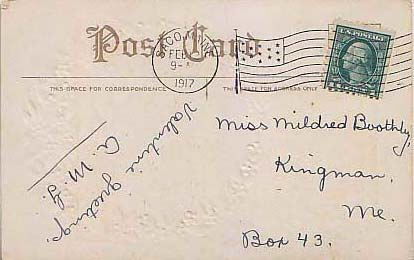 Post Card
SACO, MAINE
FEB
9-
1917
U.S. POSTAGE
THIS SPACE FOR CORRESPONDENCE
THIS SPACE FOR ADDRESS ONLY
Valentine greetings
A. M. G.
Miss Mildred Boothby,
Kingman,
Me.
Box 43.